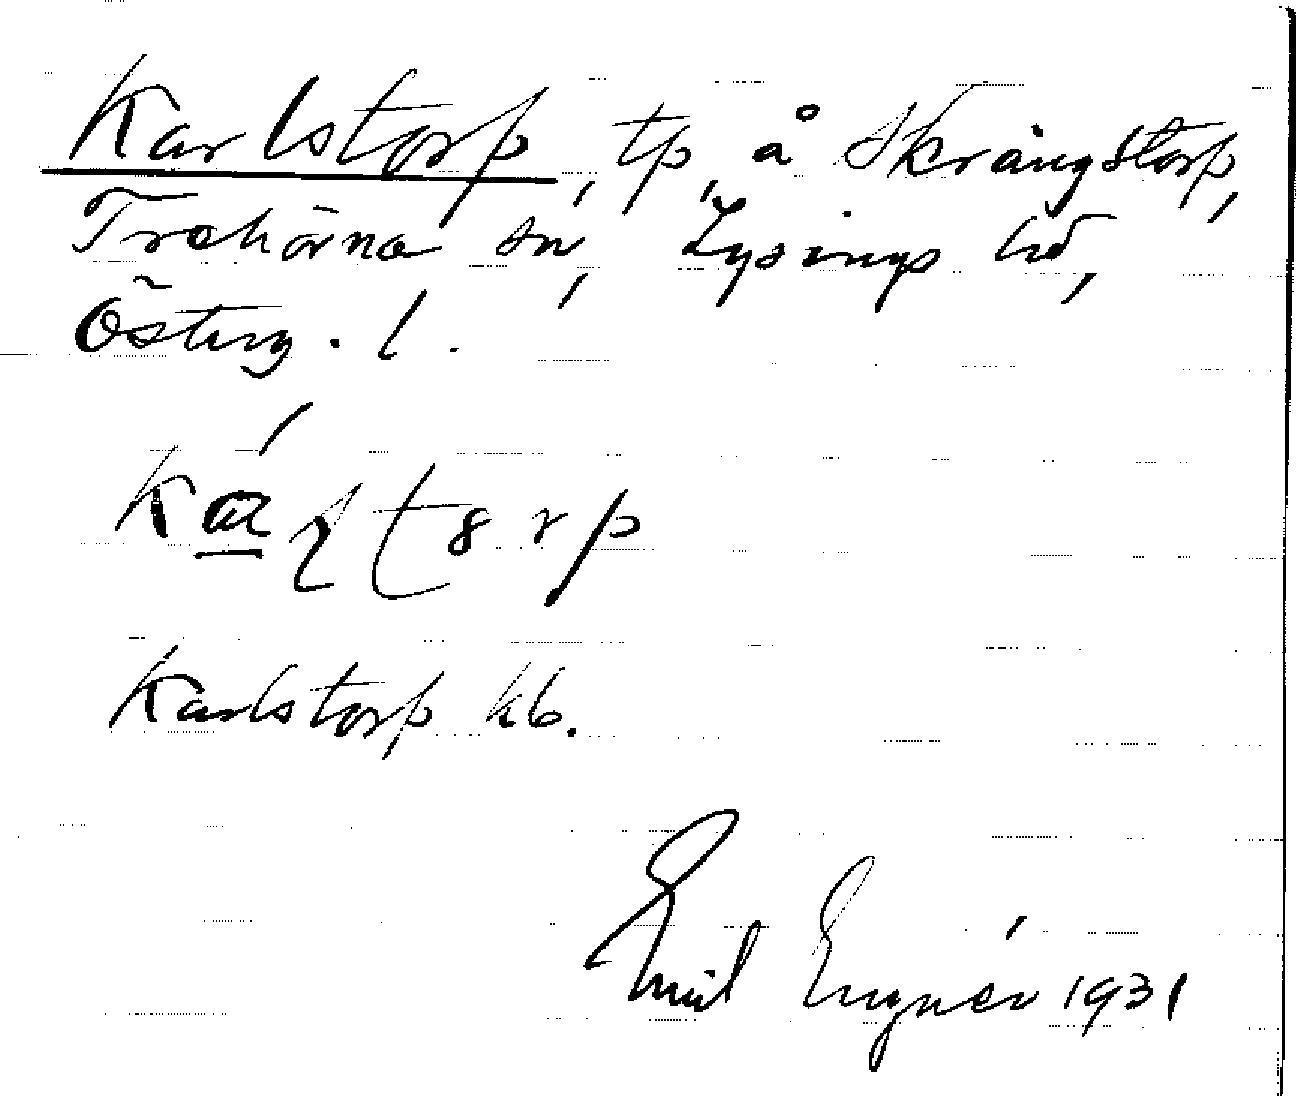 Karlstorp, tp, å Skrängstorp,
Trehörna sn, Lysings hd,
Österg. l.
Karlstorp kb.
Emil Engnér 1931